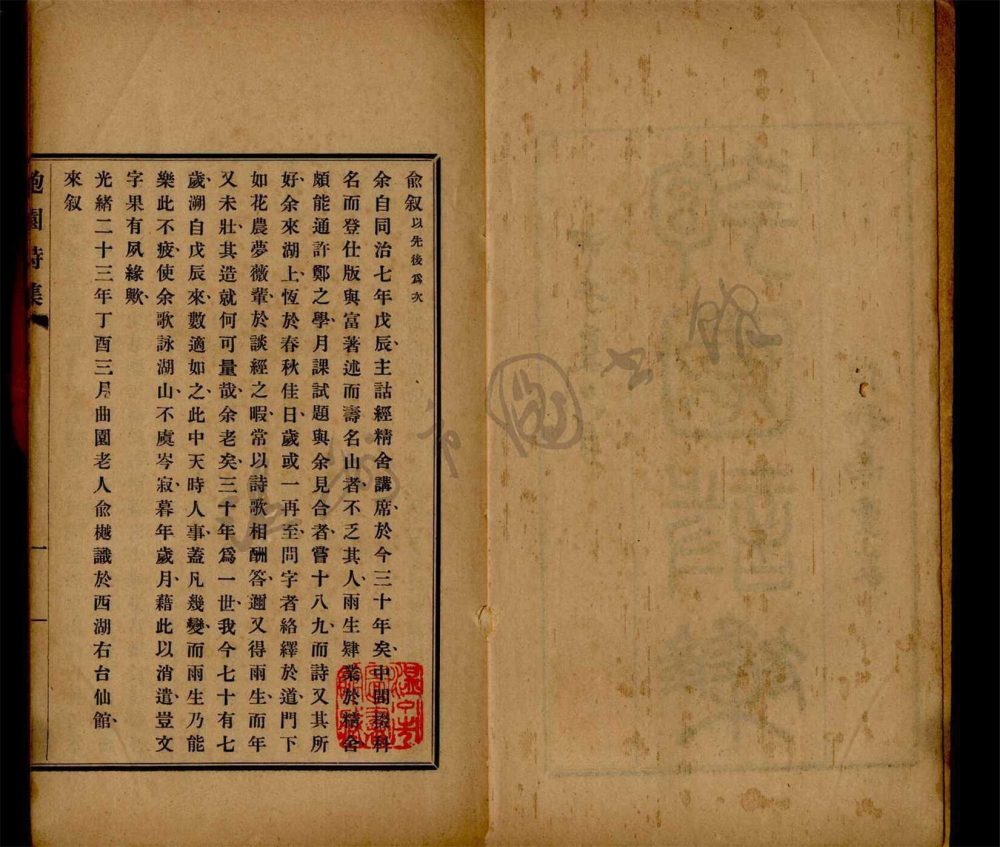 俞叙以先後爲次
余自同治七年戊辰、主詁經精舍講席、於今三十年矣、中間掇科
名而登仕版與富著述而壽名山者、不乏其人雨生肄業於精舍
頗能通許鄭之學月課試題與余見合者、嘗十八九而詩又其所
好、余來湖上、恆於春秋佳日、歲或一再至、問字者絡繹於道、門下
如花農夢薇輩、於談經之暇、常以詩歌相酬答、邇又得雨生、而年
又未壯、其造就何可量哉、余老矣、三十年爲一世、我今七十有七
歲、溯自戊辰來、數適如之、此中天時人事、蓋凡幾變、而雨生乃能
樂此不疲使余歌詠湖山、不虞岑寂、暮年歲月、藉此以消遣、豈文
字果有夙緣歟、
光緒二十三年丁酉三月曲園老人俞樾識於西湖右台仙館、
來叙
園詩集
一